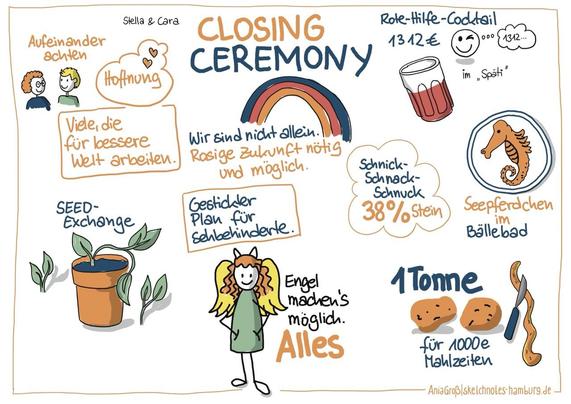 Stella & Cara
CLOSING
CEREMONY
Aufeinander
achten
Hoffnung
Viele, die
für bessere
Welt arbeiten.
Wir sind nicht allein.
Rosige Zukunft nötig
und möglich.
Rote-Hilfe-Cocktail
1312€
1312...
im "Späti"
Schnick-
Schnack-
Schnuck
38% Stein
Seepferdchen
im
Bällebad
SEED-
Exchange
Gestickter
Plan für
Sehbehinderte.
Engel
machen's
möglich.
Alles
1 Tonne
für 1000e
Mahlzeiten
AnjaGroß|sketchnotes-hamburg.de